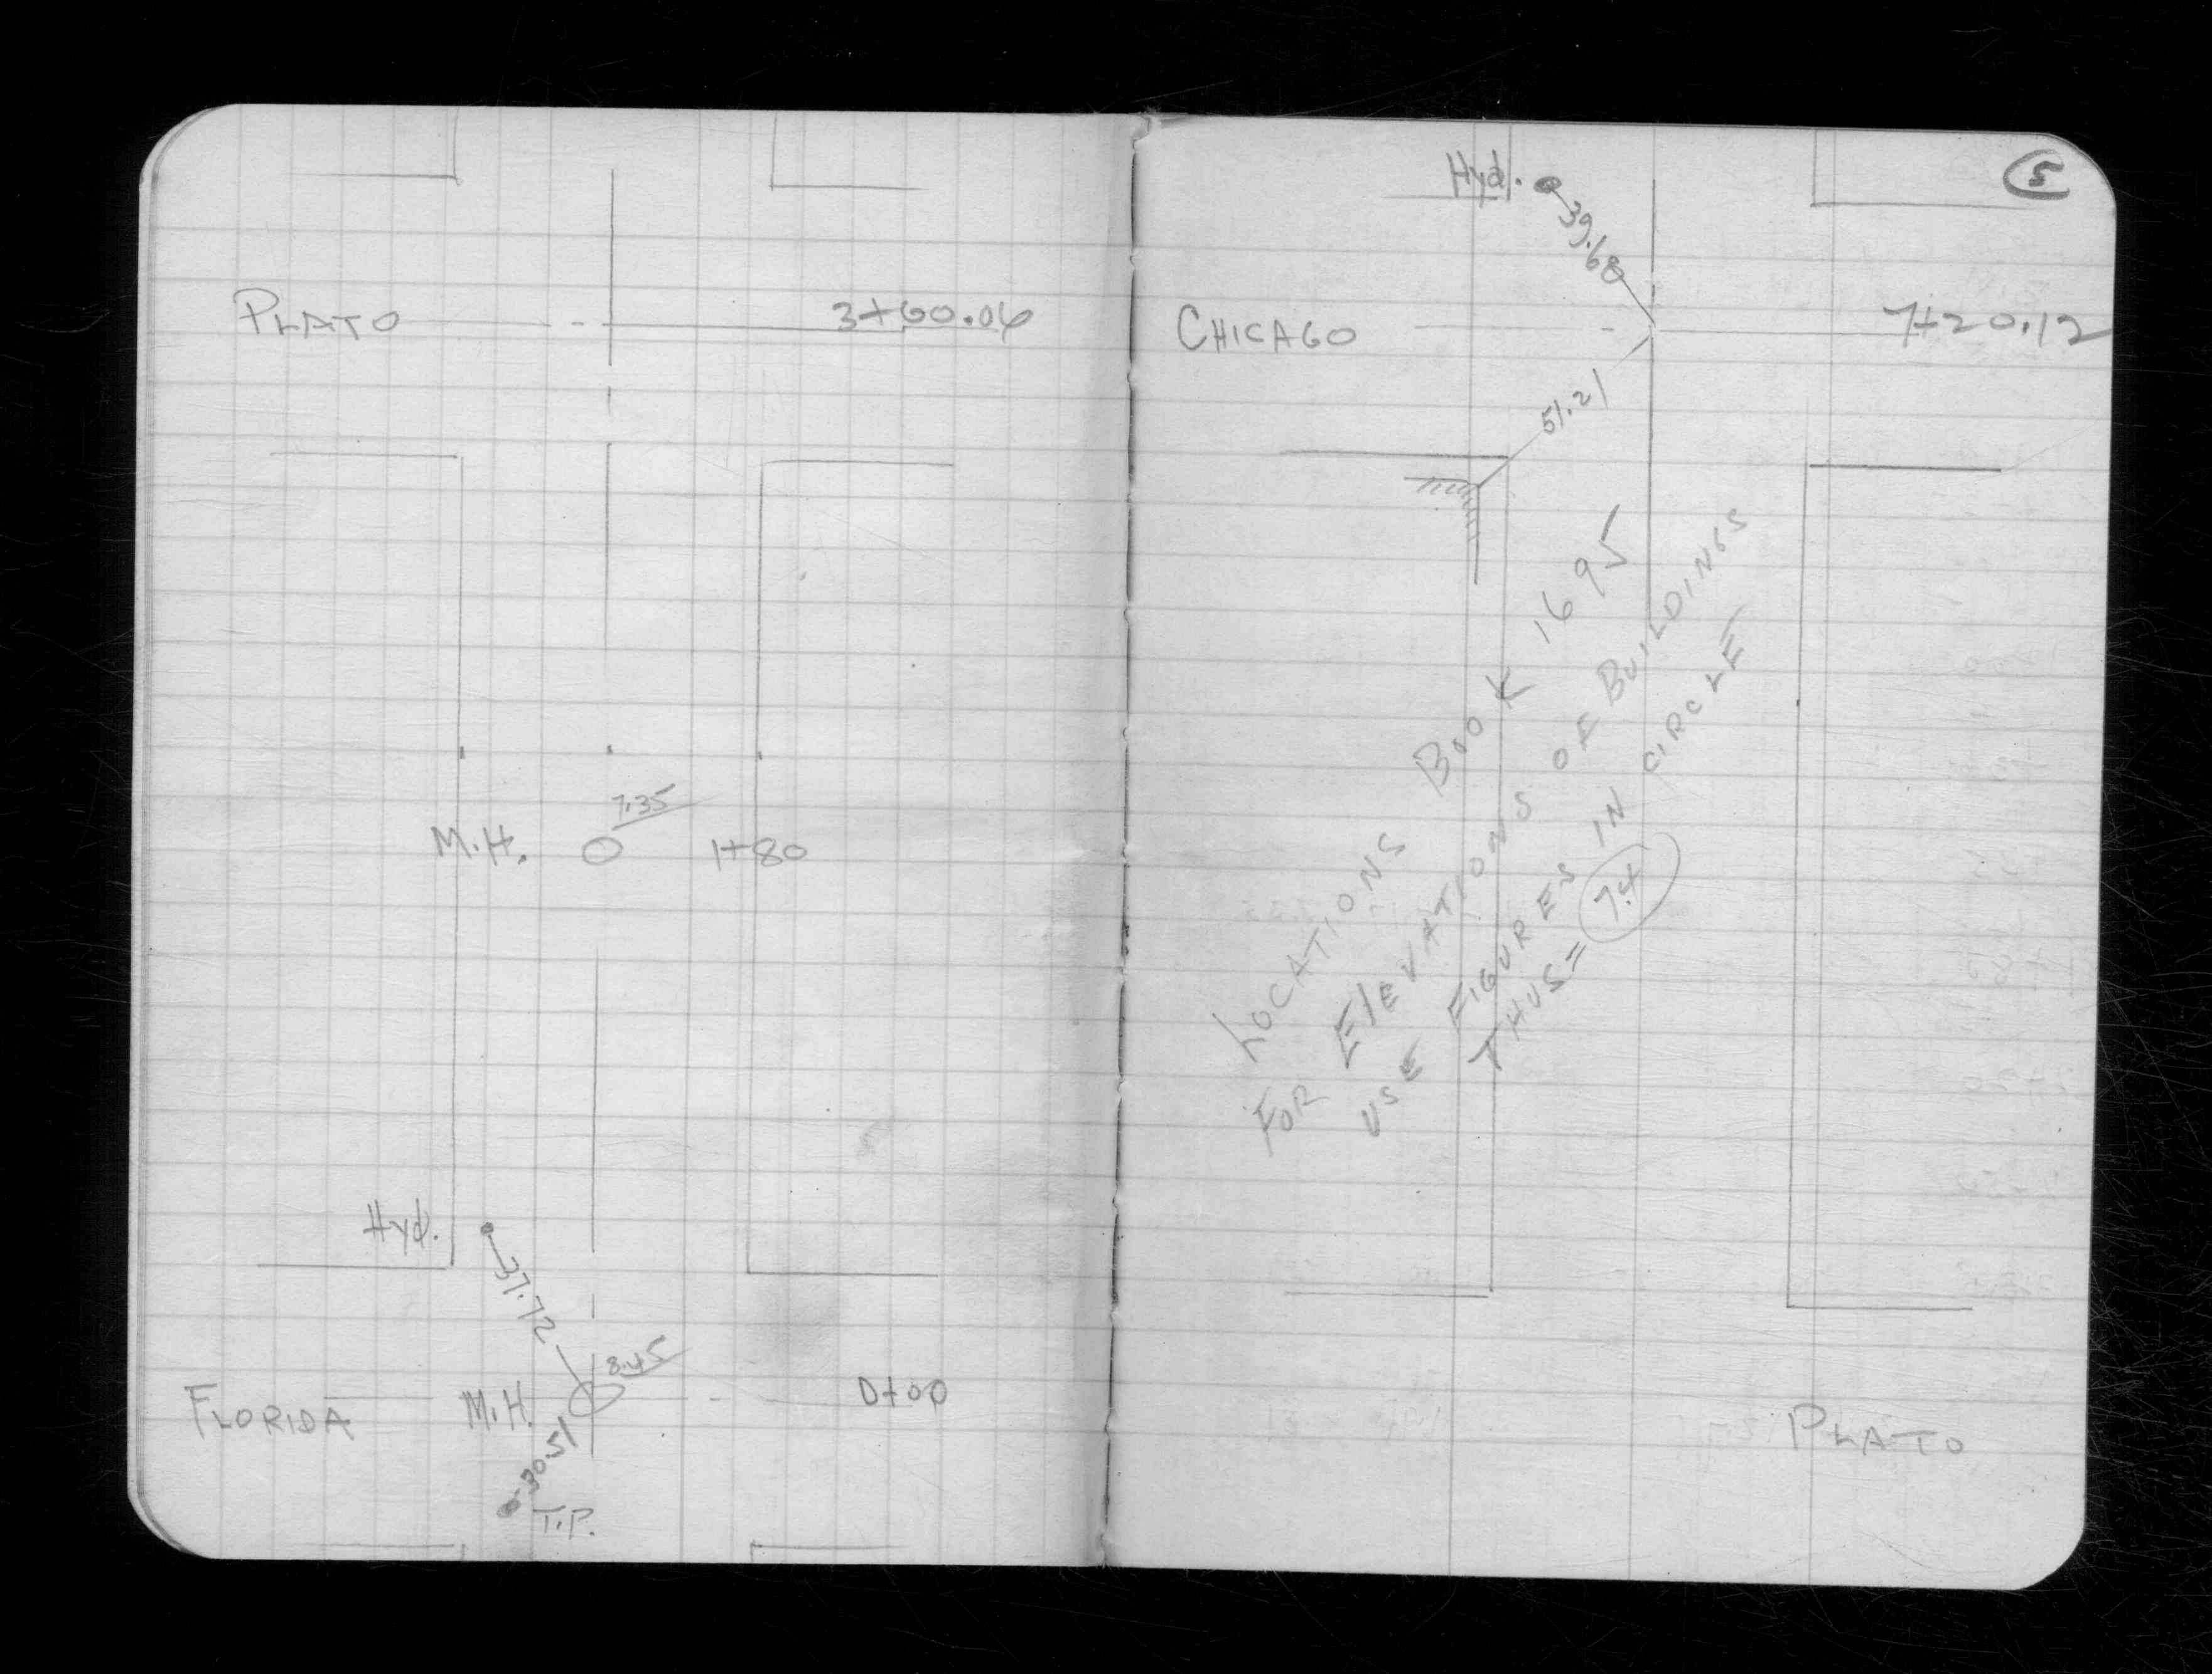 PLATO 3+60.06
7.35
M.H. 1+80
Hyd.
37.72
8.45
FLORIDA M.H. 0+00
30.51
T.P.
5
Hyd.
39.68
CHICAGO 7+20.12
51.21
LOCATIONS BOOK 1695
FOR ELEVATIONS OF BUILDINGS
USE FIGURES IN CIRCLE
THUS= 7.4
PLATO